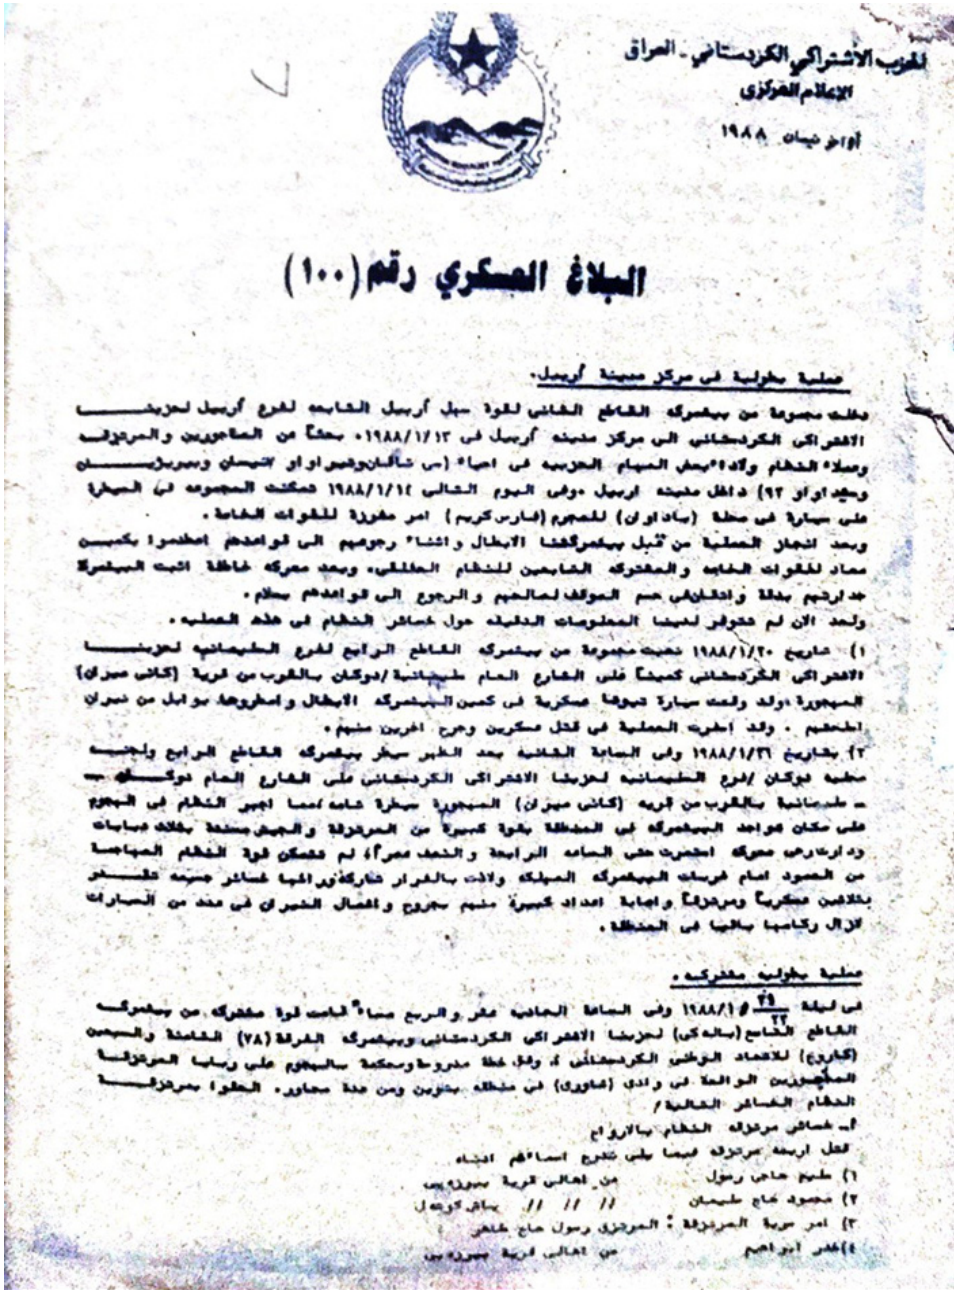 الحزب الاشتراكي الكردستاني - العراق
الاعلام المركزي
أواخر نيسان ١٩٨٨
البلاغ العسكري رقم (١٠٠)
عملية بطولية في مركز مدينة أربيل.
دخلت مجموعة من بيشمركه القاطع الثاني لقوة سهل أربيل التابعه لفرع أربيل لحزبنا
الاشتراكي الكردستاني الى مركز مدينه أربيل في ١٩٨٨/١/١٣، بحثاً عن المأجورين والمرتزقه
وعملاء النظام ولاداء بعض المهام الحزبيه في احياء
داخل مدينه اربيل .وفي اليوم التالي ١٩٨٨/١/١٤ تمكنت المجموعه في السيطرة
على سيارة في محلة (بداوان) للمجرم (فارس كريم) امر مفرزة للقوات الخاصة .
وبعد انجاز العملية من قبل بيشمركتنا الابطال واثناء رجوعهم الى قواعدهم اصطدموا بكمين
معاد للقوات الخاصه والمشتركه التابعين للنظام ، وبعد معركه خاطفة اثبت البيشمركة
جدارتهم بدقة في حسم الموقف لصالحهم والرجوع الى قواعدهم بسلام .
ولحد الان لم تتوفر لدينا المعلومات الدقيقه حول خسائر النظام في هذه العمليه .
١) بتاريخ ١٩٨٨/١/٢٠ نصبت مجموعة من بيشمركه القاطع الرابع لفرع السليمانيه لحزبنا
الاشتراكي الكردستاني كميناً على الشارع العام سليمانية/دوكان بالقرب من قرية (كاني ميران)
المهجورة ،وقد وقعت سيارة عسكرية في كمين البيشمركه الابطال وامطروها بوابل من نيران
اسلحتهم . وقد اسفرت العملية في قتل عسكرين وجرح اخرين منهم .
٢) بتاريخ ١٩٨٨/١/٢٦ وفي الساعة الثانيه بعد الظهر سيطر بيشمركه القاطع الرابع ولجنة
محليه دوكان /فرع السليمانيه لحزبنا الاشتراكي الكردستاني على الشارع العام دوكان -
- سليمانية بالقرب من قريه (كاني ميران) المهجورة سيطرة تامه،مما اجبر النظام في الهجوم
على مكان تواجد البيشمركه في المنطقة بقوة كبيرة من المرتزقة والجيش مسندة بثلاث دبابات
ودارت رحى معركه استمرت حتى الساعه الرابعة والنصف عصراً، لم تتمكن قوة النظام المهاجمة
من الصمود امام ضربات البيشمركه المهلكه ولاذت بالفرار تاركة وراءها خسائر جسيمه
بثلاثين عسكرياً ومرتزقاً واصابة اعداد كبيرة منهم بجروح واشعال النيران في عدد من السيارات
لازال ركامها باقيا في المنطقة .
عملية بطوليه مشتركه .
في ليلة ٢١/٢٢ /١٩٨٨/١ وفي الساعة الحاديه عشر والربع مساءً قامت قوة مشتركه من بيشمركه
القاطع التاسع (باله‌كى) لحزبنا الاشتراكي الكردستاني وبيشمركه الفرقة (٧٨) الثامنة والسبعين
(كاروخ) للاتحاد الوطني الكردستاني ، وفق خطة مدروسة ومحكمة بالهجوم على ربايا المرتزقة
المأجورين الواقعة في وادي في منطقه بتوين ومن عدة محاور. الحقوا بمرتزقة
النظام الخسائر التالية/
أ- خسائر مرتزقه النظام بالارواح
قتل اربعه مرتزقه فيما يلي ندرج اسماءهم ادناه
١) حاجي رسول من اهالي قرية
٢) محمود حاج سليمان // // //
٣) امر سرية المرتزقة : المرتزق رسول حاج
٤)خدر ابراهيم من اهالي قرية